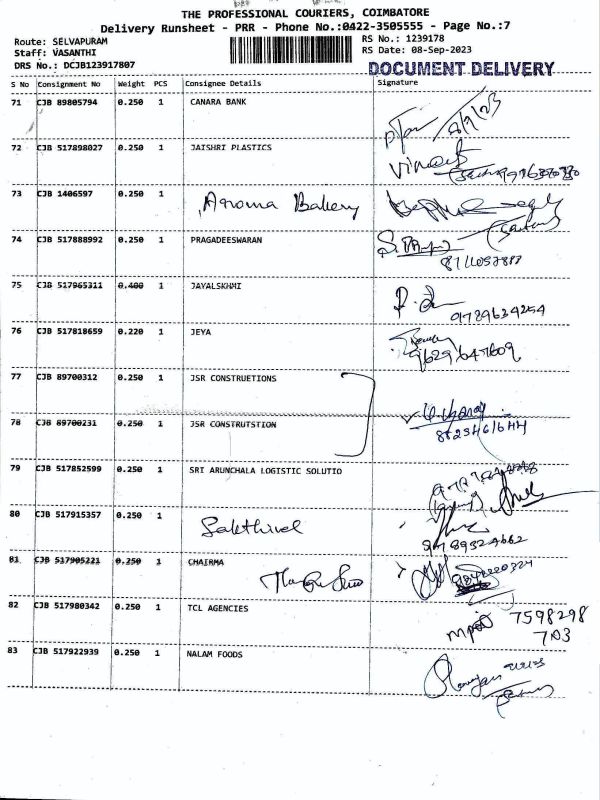 THE PROFESSIONAL COURIERS, COIMBATORE
Delivery Runsheet - PRR - Phone No.:0422-3505555 - Page No.:7
Route: SELVAPURAM RS No.: 1239178
Staff: VASANTHI RS Date: 08-Sep-2023
DRS No.: DCJB123917807 DOCUMENT DELIVERY
S No Consignment No Weight PCS Consignee Details Signature
71 CJB 89805794 0.250 1 CANARA BANK 8/9/23
72 CJB 517898027 0.250 1 JAISHRI PLASTICS
73 CJB 1406597 0.250 1 Aroma Bakery
74 CJB 517888992 0.250 1 PRAGADEESWARAN
75 CJB 517965311 0.400 1 JAYALSKHMI
9789634254
76 CJB 517818659 0.220 1 JEYA
9629647609
77 CJB 89700312 0.250 1 JSR CONSTRUETIONS
78 CJB 89700231 0.250 1 JSR CONSTRUTSTION
79 CJB 517852599 0.250 1 SRI ARUNCHALA LOGISTIC SOLUTIO
80 CJB 517915357 0.250 1 Sakthivel
81 CJB 517905221 0.250 1 CHAIRMA
82 CJB 517980342 0.250 1 TCL AGENCIES 7598298
703
83 CJB 517922939 0.250 1 NALAM FOODS